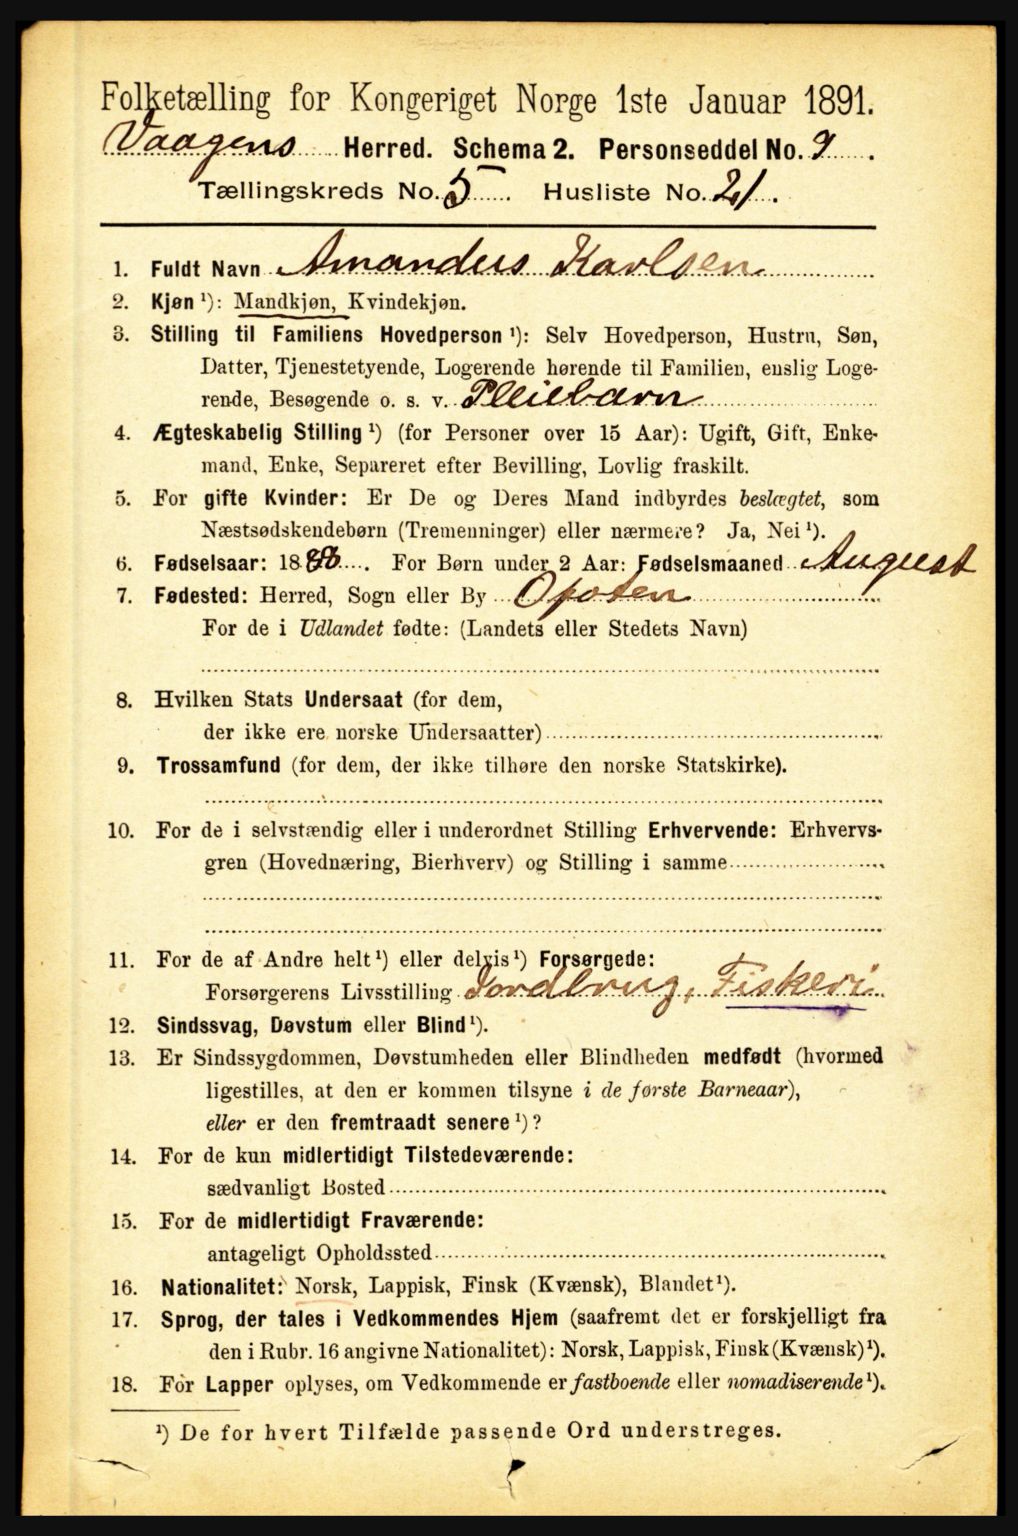 Folketælling for Kongeriget Norge 1ste Januar 1891.
Vaagens Herred. Schema 2. Personseddel No. 9.
Tællingskreds No. 5. Husliste No. 21.
1. Fuldt Navn Amandus Karlsen
2. Kjøn ¹): Mandkjøn, Kvindekjøn.
3. Stilling til Familiens Hovedperson ¹): Selv Hovedperson, Hustru, Søn,
Datter, Tjenestetyende, Logerende hørende til Familien, enslig Loge-
rende, Besøgende o. s. v. Pleiebarn
4. Ægteskabelig Stilling ¹) (for Personer over 15 Aar): Ugift, Gift, Enke-
mand, Enke, Separeret efter Bevilling, Lovlig fraskilt.
5. For gifte Kvinder: Er De og Deres Mand indbyrdes beslægtet, som
Næstsødskendebørn (Tremenninger) eller nærmere? Ja, Nei ¹).
6. Fødselsaar: 1888. For Børn under 2 Aar: Fødselsmaaned August
7. Fødested: Herred, Sogn eller By Ofoten
For de i Udlandet fødte: (Landets eller Stedets Navn)
8. Hvilken Stats Undersaat (for dem,
der ikke ere norske Undersaatter)
9. Trossamfund (for dem, der ikke tilhøre den norske Statskirke).
10. For de i selvstændig eller i underordnet Stilling Erhvervende: Erhvervs-
gren (Hovednæring, Bierhverv) og Stilling i samme
11. For de af Andre helt ¹) eller delvis ¹) Forsørgede:
Forsørgerens Livsstilling Jordbrug, Fiskeri
12. Sindssvag, Døvstum eller Blind ¹).
13. Er Sindssygdommen, Døvstumheden eller Blindheden medfødt (hvormed
ligestilles, at den er kommen tilsyne i de første Barneaar),
eller er den fremtraadt senere ¹)?
14. For de kun midlertidigt Tilstedeværende:
sædvanligt Bosted
15. For de midlertidigt Fraværende:
antageligt Opholdssted
16. Nationalitet: Norsk, Lappisk, Finsk (Kvænsk), Blandet ¹).
17. Sprog, der tales i Vedkommendes Hjem (saafremt det er forskjelligt fra
den i Rubr. 16 angivne Nationalitet): Norsk, Lappisk, Finsk (Kvænsk) ¹).
18. For Lapper oplyses, om Vedkommende er fastboende eller nomadiserende ¹).
¹) De for hvert Tilfælde passende Ord understreges.